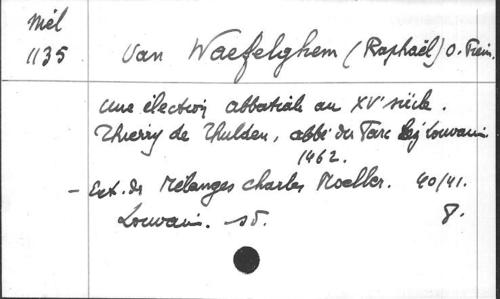 Mél
1135
Van Waefelghem (Raphaël) O. Prém.
Une élection abbatiale au XVe siècle.
Thierry de Thulden, abbé du Parc lez Louvain
1462.
- Ext. de Mélanges Charles Moeller. 40/41.
Louvain. sd. 8.